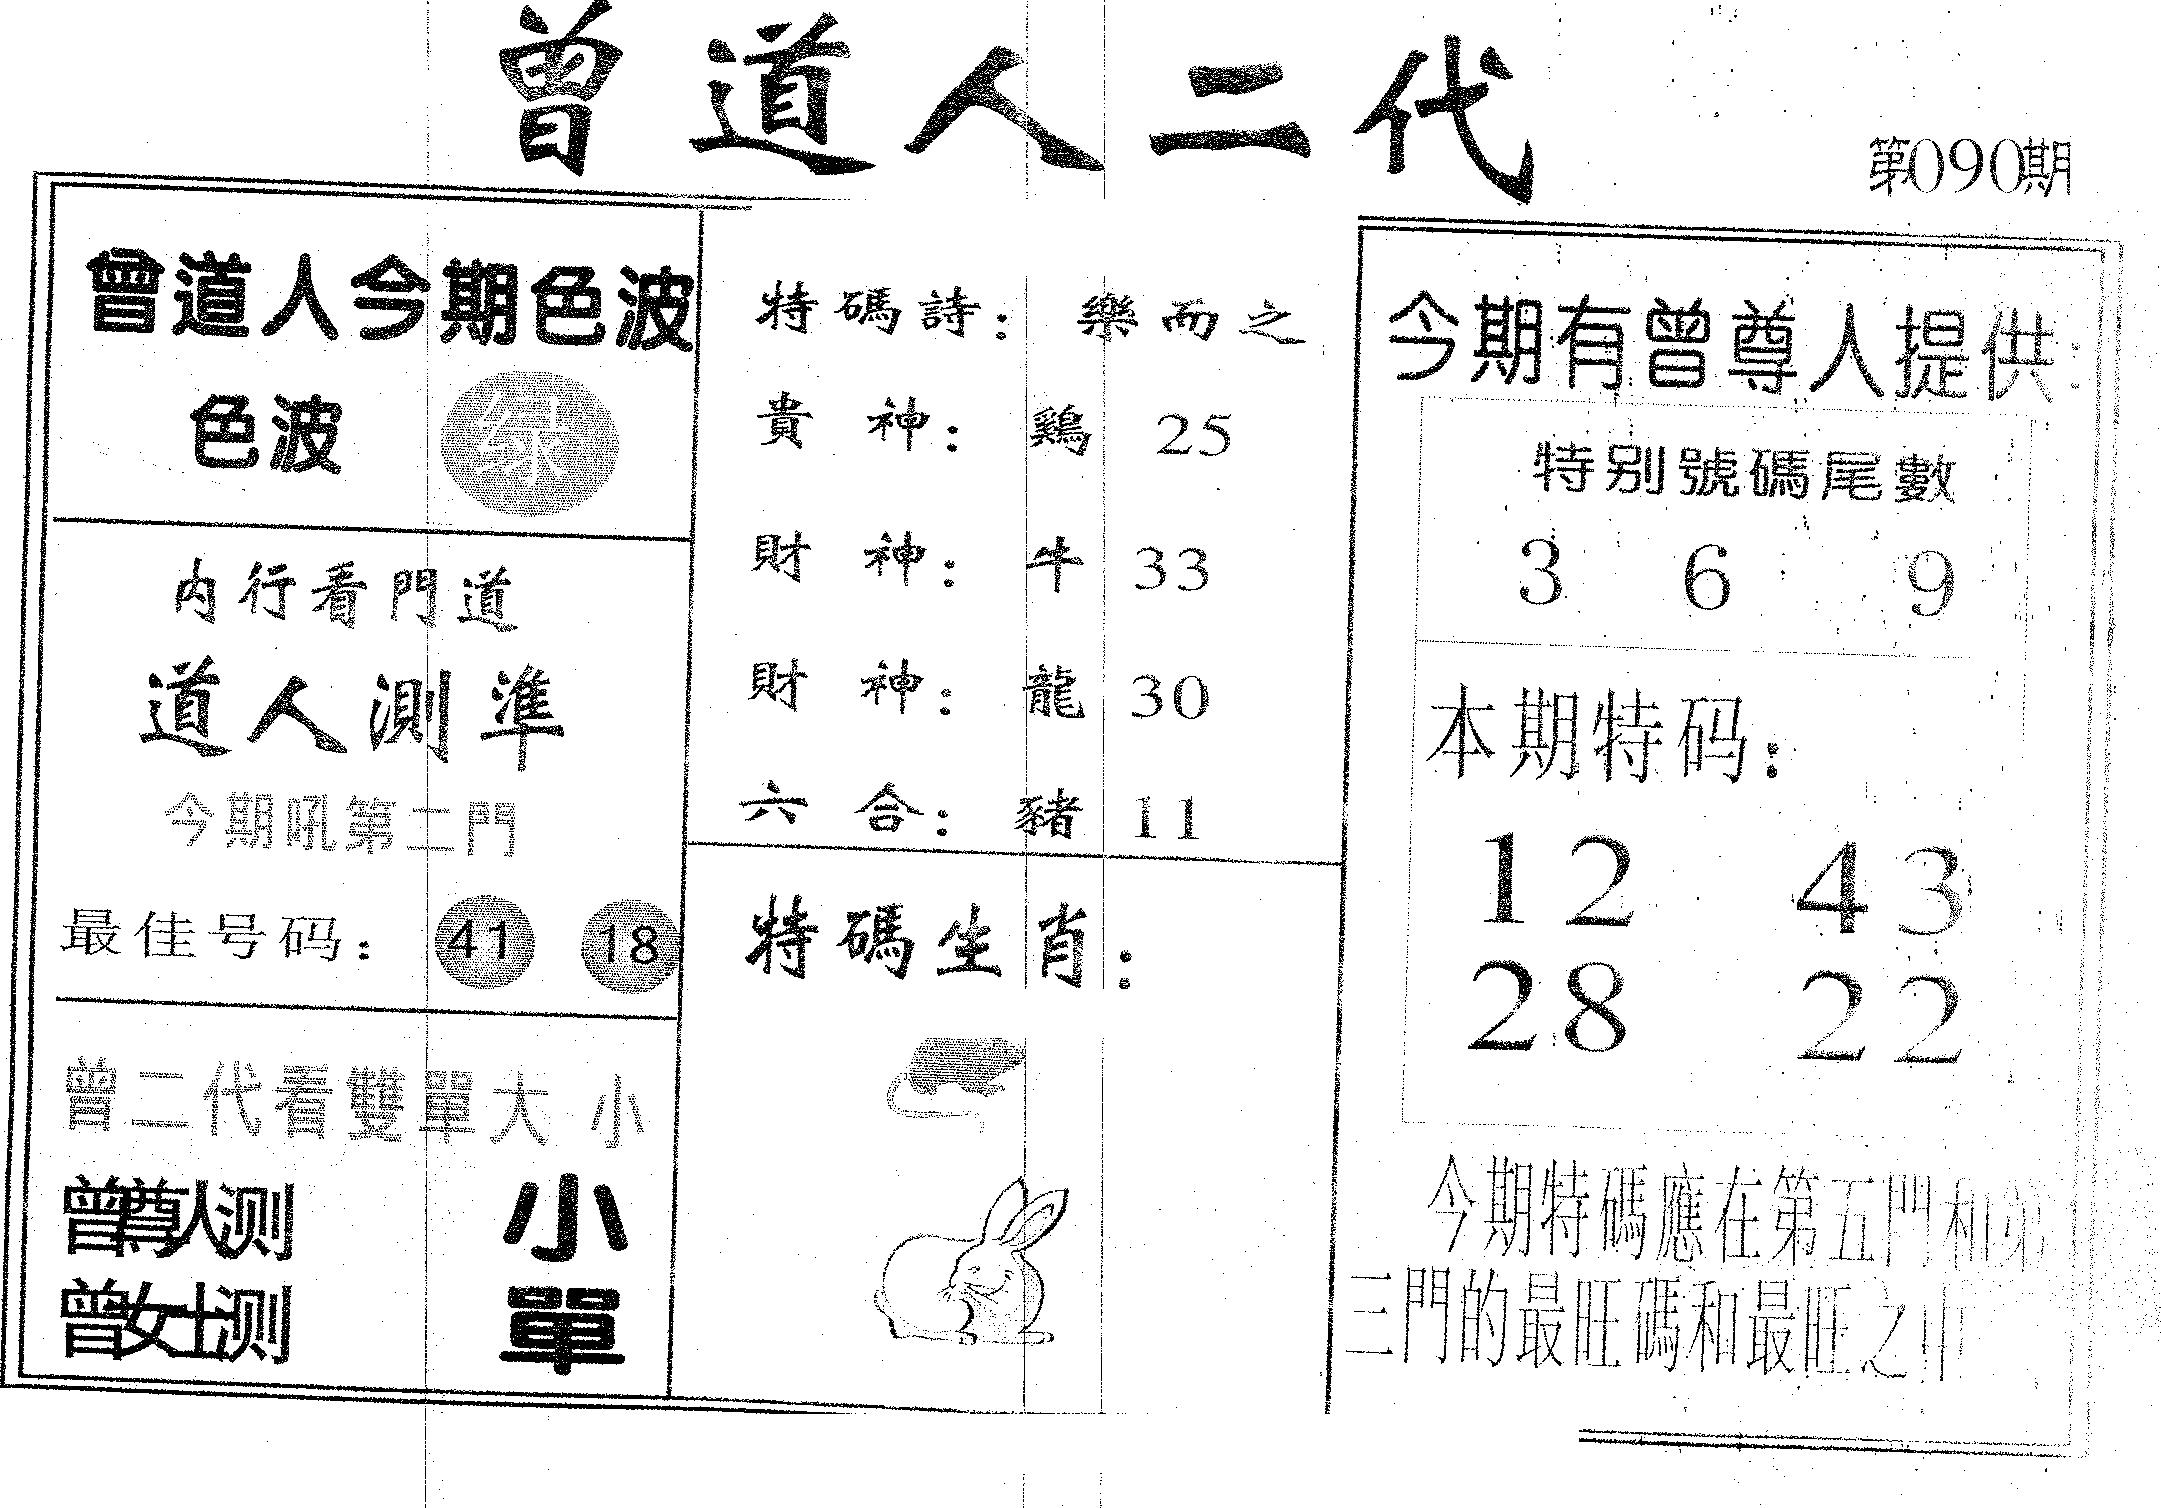 曾道人二代
第090期
曾道人今期色波
色波 绿
内行看門道
道人測準
今期吼第二門
最佳号码： 41 18
曾二代看雙單大 小
曾尊人测 小
曾女士测 單
特碼詩： 樂而之
貴 神： 鷄 25
財 神： 牛 33
財 神： 龍 30
六 合： 豬 11
特碼生肖：
今期有曾尊人提供：
特别號碼尾數
3 6 9
本期特码：
12 43
28 22
今期特碼應在第五門和第
三門的最旺碼和最旺之中